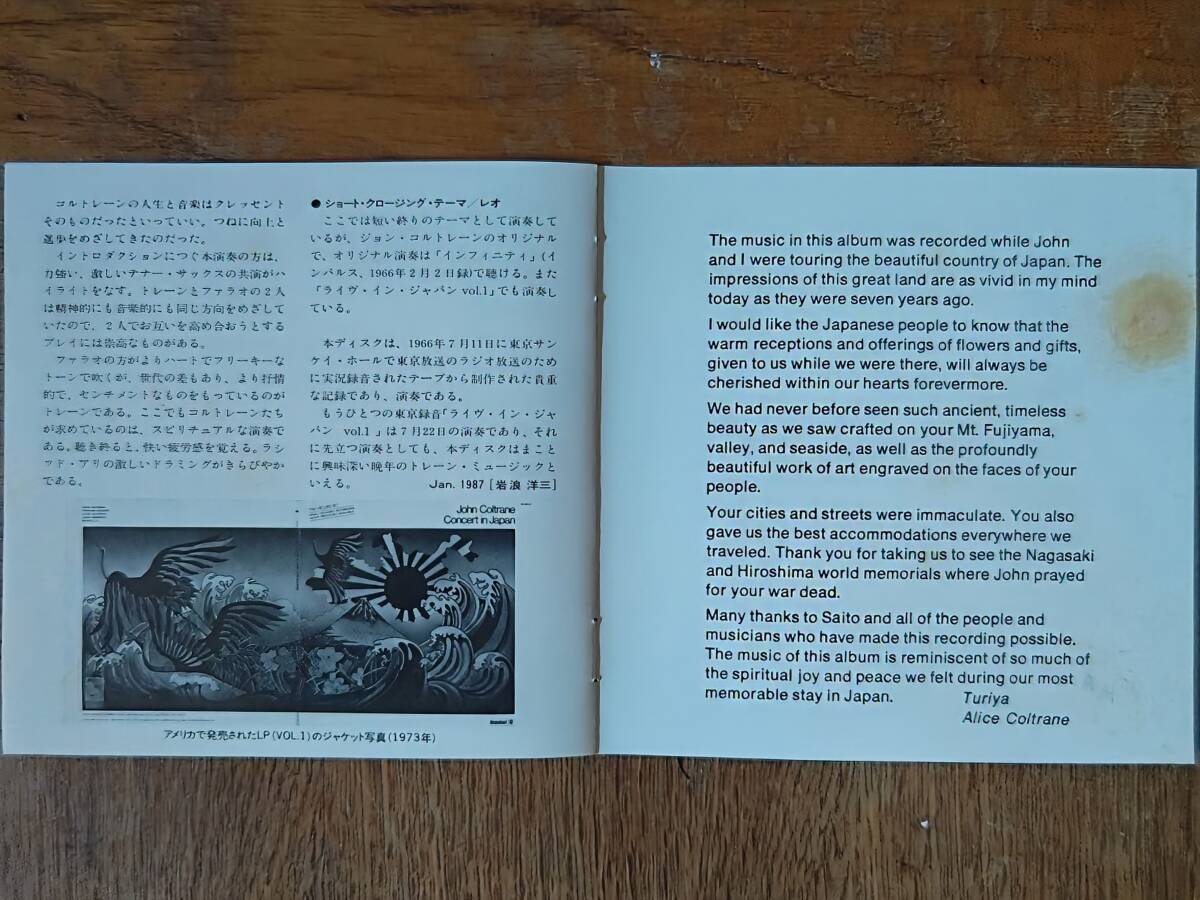 コルトレーンの人生と音楽はクレッセント
そのものだったといっていい。つねに向上と
進歩をめざしてきたのだった。
イントロダクションにつぐ本演奏の方は、
力強い、激しいテナー・サックスの共演がハ
イライトをなす。トレーンとファラオの2人
は精神的にも音楽的にも同じ方向をめざして
いたので、2人でお互いを高め合おうとする
プレイには崇高なものがある。
ファラオの方がよりハートでフリーキーな
トーンで吹くが、世代の差もあり、より抒情
的で、センチメントなものをもっているのが
トレーンである。ここでもコルトレーンたち
が求めているのは、スピリチュアルな演奏で
ある。聴き終ると、快い疲労感を覚える。ラシ
ッド・アリの激しいドラミングがきらびやか
である。
● ショート・クロージング・テーマ/レオ
ここでは短い終りのテーマとして演奏して
いるが、ジョン・コルトレーンのオリジナル
で、オリジナル演奏は「インフィニティ」(イ
ンパルス、1966年2月2日録)で聴ける。また
「ライヴ・イン・ジャパン vol.1」でも演奏し
ている。
本ディスクは、1966年7月11日に東京サン
ケイ・ホールで東京放送のラジオ放送のため
に実況録音されたテープから制作された貴重
な記録であり、演奏である。
もうひとつの東京録音「ライヴ・イン・ジャ
パン vol.1」は7月22日の演奏であり、それ
に先立つ演奏としても、本ディスクはまこと
に興味深い晩年のトレーン・ミュージックと
いえる。 Jan. 1987 [岩浪 洋三]
John Coltrane
Concert in Japan
アメリカで発売されたLP(VOL.1)のジャケット写真(1973年)
The music in this album was recorded while John
and I were touring the beautiful country of Japan. The
impressions of this great land are as vivid in my mind
today as they were seven years ago.
I would like the Japanese people to know that the
warm receptions and offerings of flowers and gifts,
given to us while we were there, will always be
cherished within our hearts forevermore.
We had never before seen such ancient, timeless
beauty as we saw crafted on your Mt. Fujiyama,
valley, and seaside, as well as the profoundly
beautiful work of art engraved on the faces of your
people.
Your cities and streets were immaculate. You also
gave us the best accommodations everywhere we
traveled. Thank you for taking us to see the Nagasaki
and Hiroshima world memorials where John prayed
for your war dead.
Many thanks to Saito and all of the people and
musicians who have made this recording possible.
The music of this album is reminiscent of so much of
the spiritual joy and peace we felt during our most
memorable stay in Japan. Turiya
Alice Coltrane